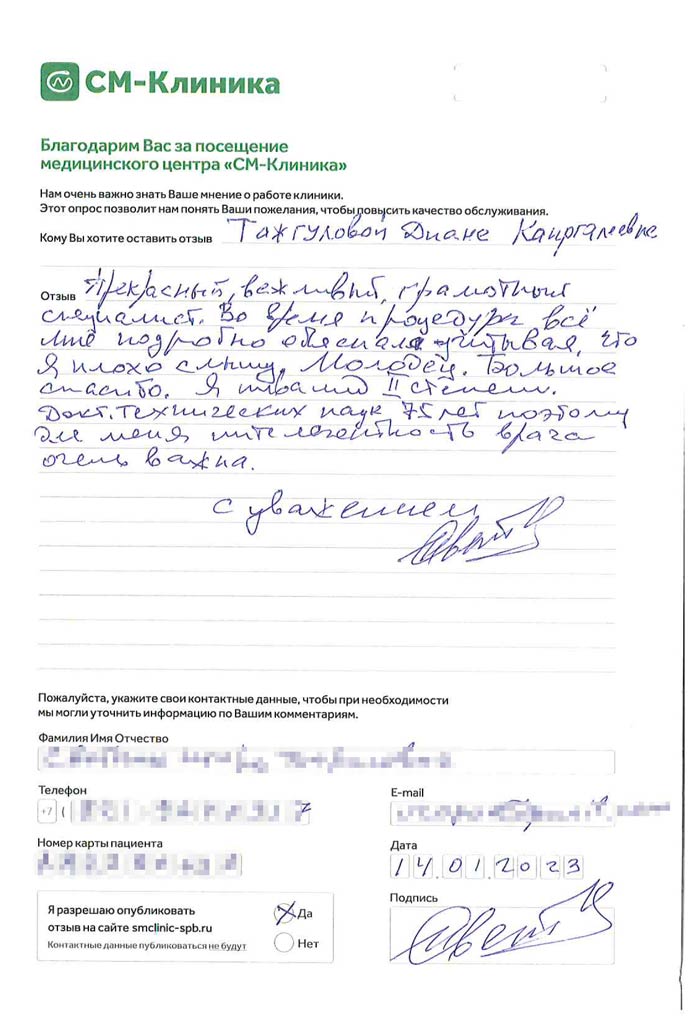 СМ-Клиника
Благодарим Вас за посещение
медицинского центра «СМ-Клиника»
Нам очень важно знать Ваше мнение о работе клиники.
Этот опрос позволит нам понять Ваши пожелания, чтобы повысить качество обслуживания.
Кому Вы хотите оставить отзыв Тажгуловой Диане Каиргалеевне
Отзыв Прекрасный, вежливый, грамотный
специалист. Во время процедуры всё
мне подробно обяснала учитывая, что
я плохо слышу. Молодец. Большое
спасибо. Я инвалид II степени.
Докт. технических наук 75 лет поэтому
для меня интелегентность врача
очень важна.
с уважением
Пожалуйста, укажите свои контактные данные, чтобы при необходимости
мы могли уточнить информацию по Вашим комментариям.
Фамилия Имя Отчество
Телефон
E-mail
+7 (
Номер карты пациента
Дата
14.01.2023
Я разрешаю опубликовать
отзыв на сайте smclinic-spb.ru
Контактные данные публиковаться не будут
Да
Нет
Подпись